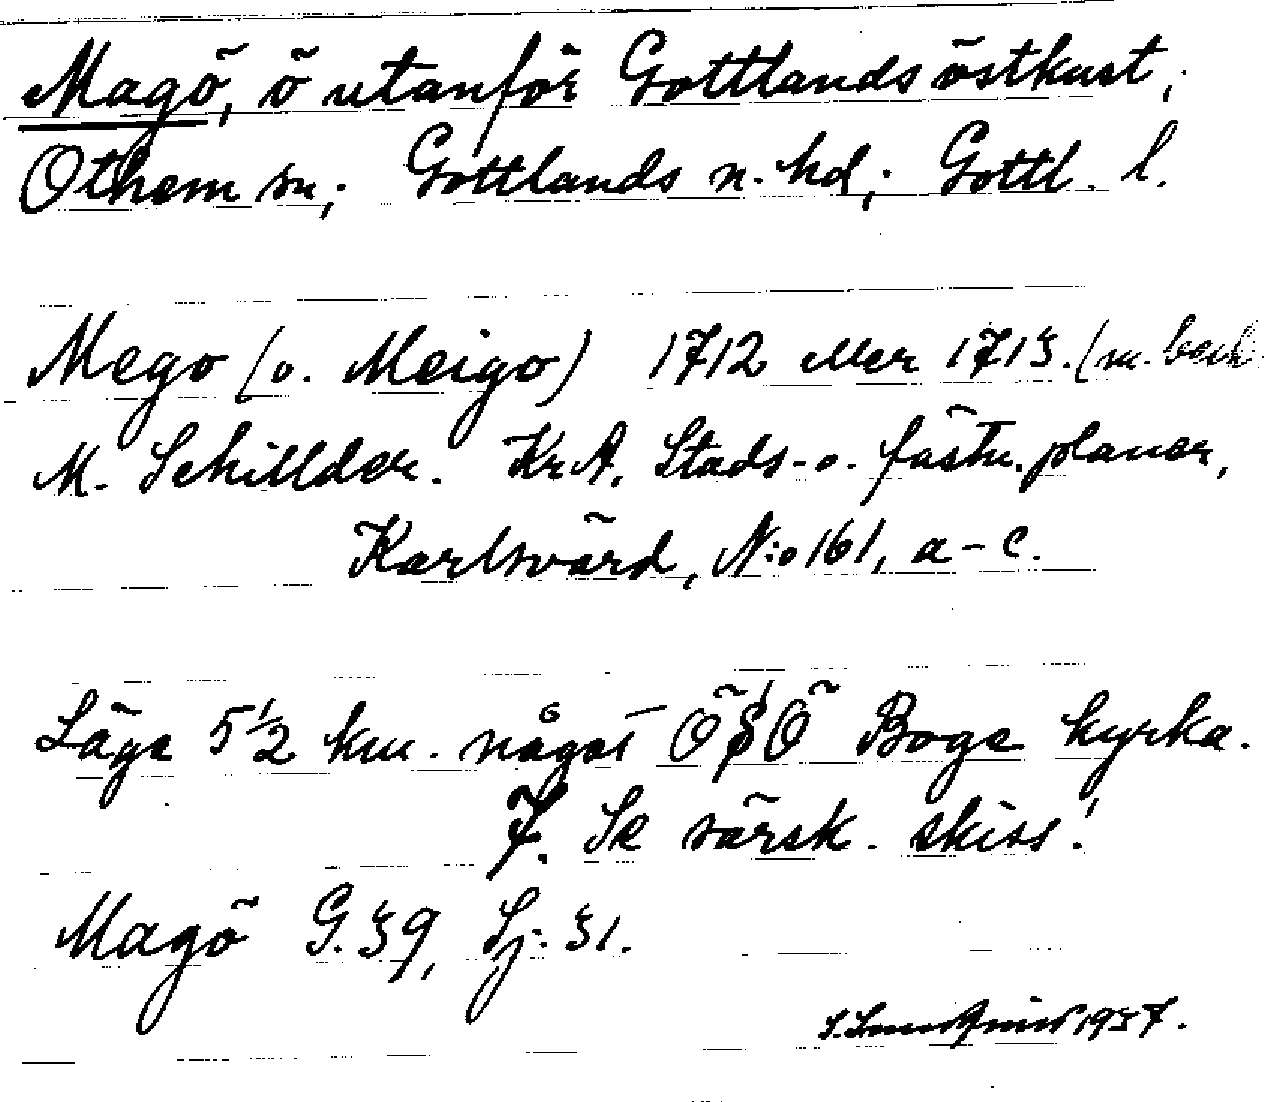 Magö, ö utanför Gottlands östkust;
Othem sn; Gottlands n. hd; Gottl. l.
Mego (o. Meigo) 1712 eller 1713. (m. beck
M. Schillder. Kr A. Stads- o. fästn. planer,
Karlsvärd, N:o 161, a - c.
Läge 5 1/2 km. något ÖSÖ Boge kyrka.
F. Se särsk. skiss!
Magö G. 39, Lj. 31.
1937.